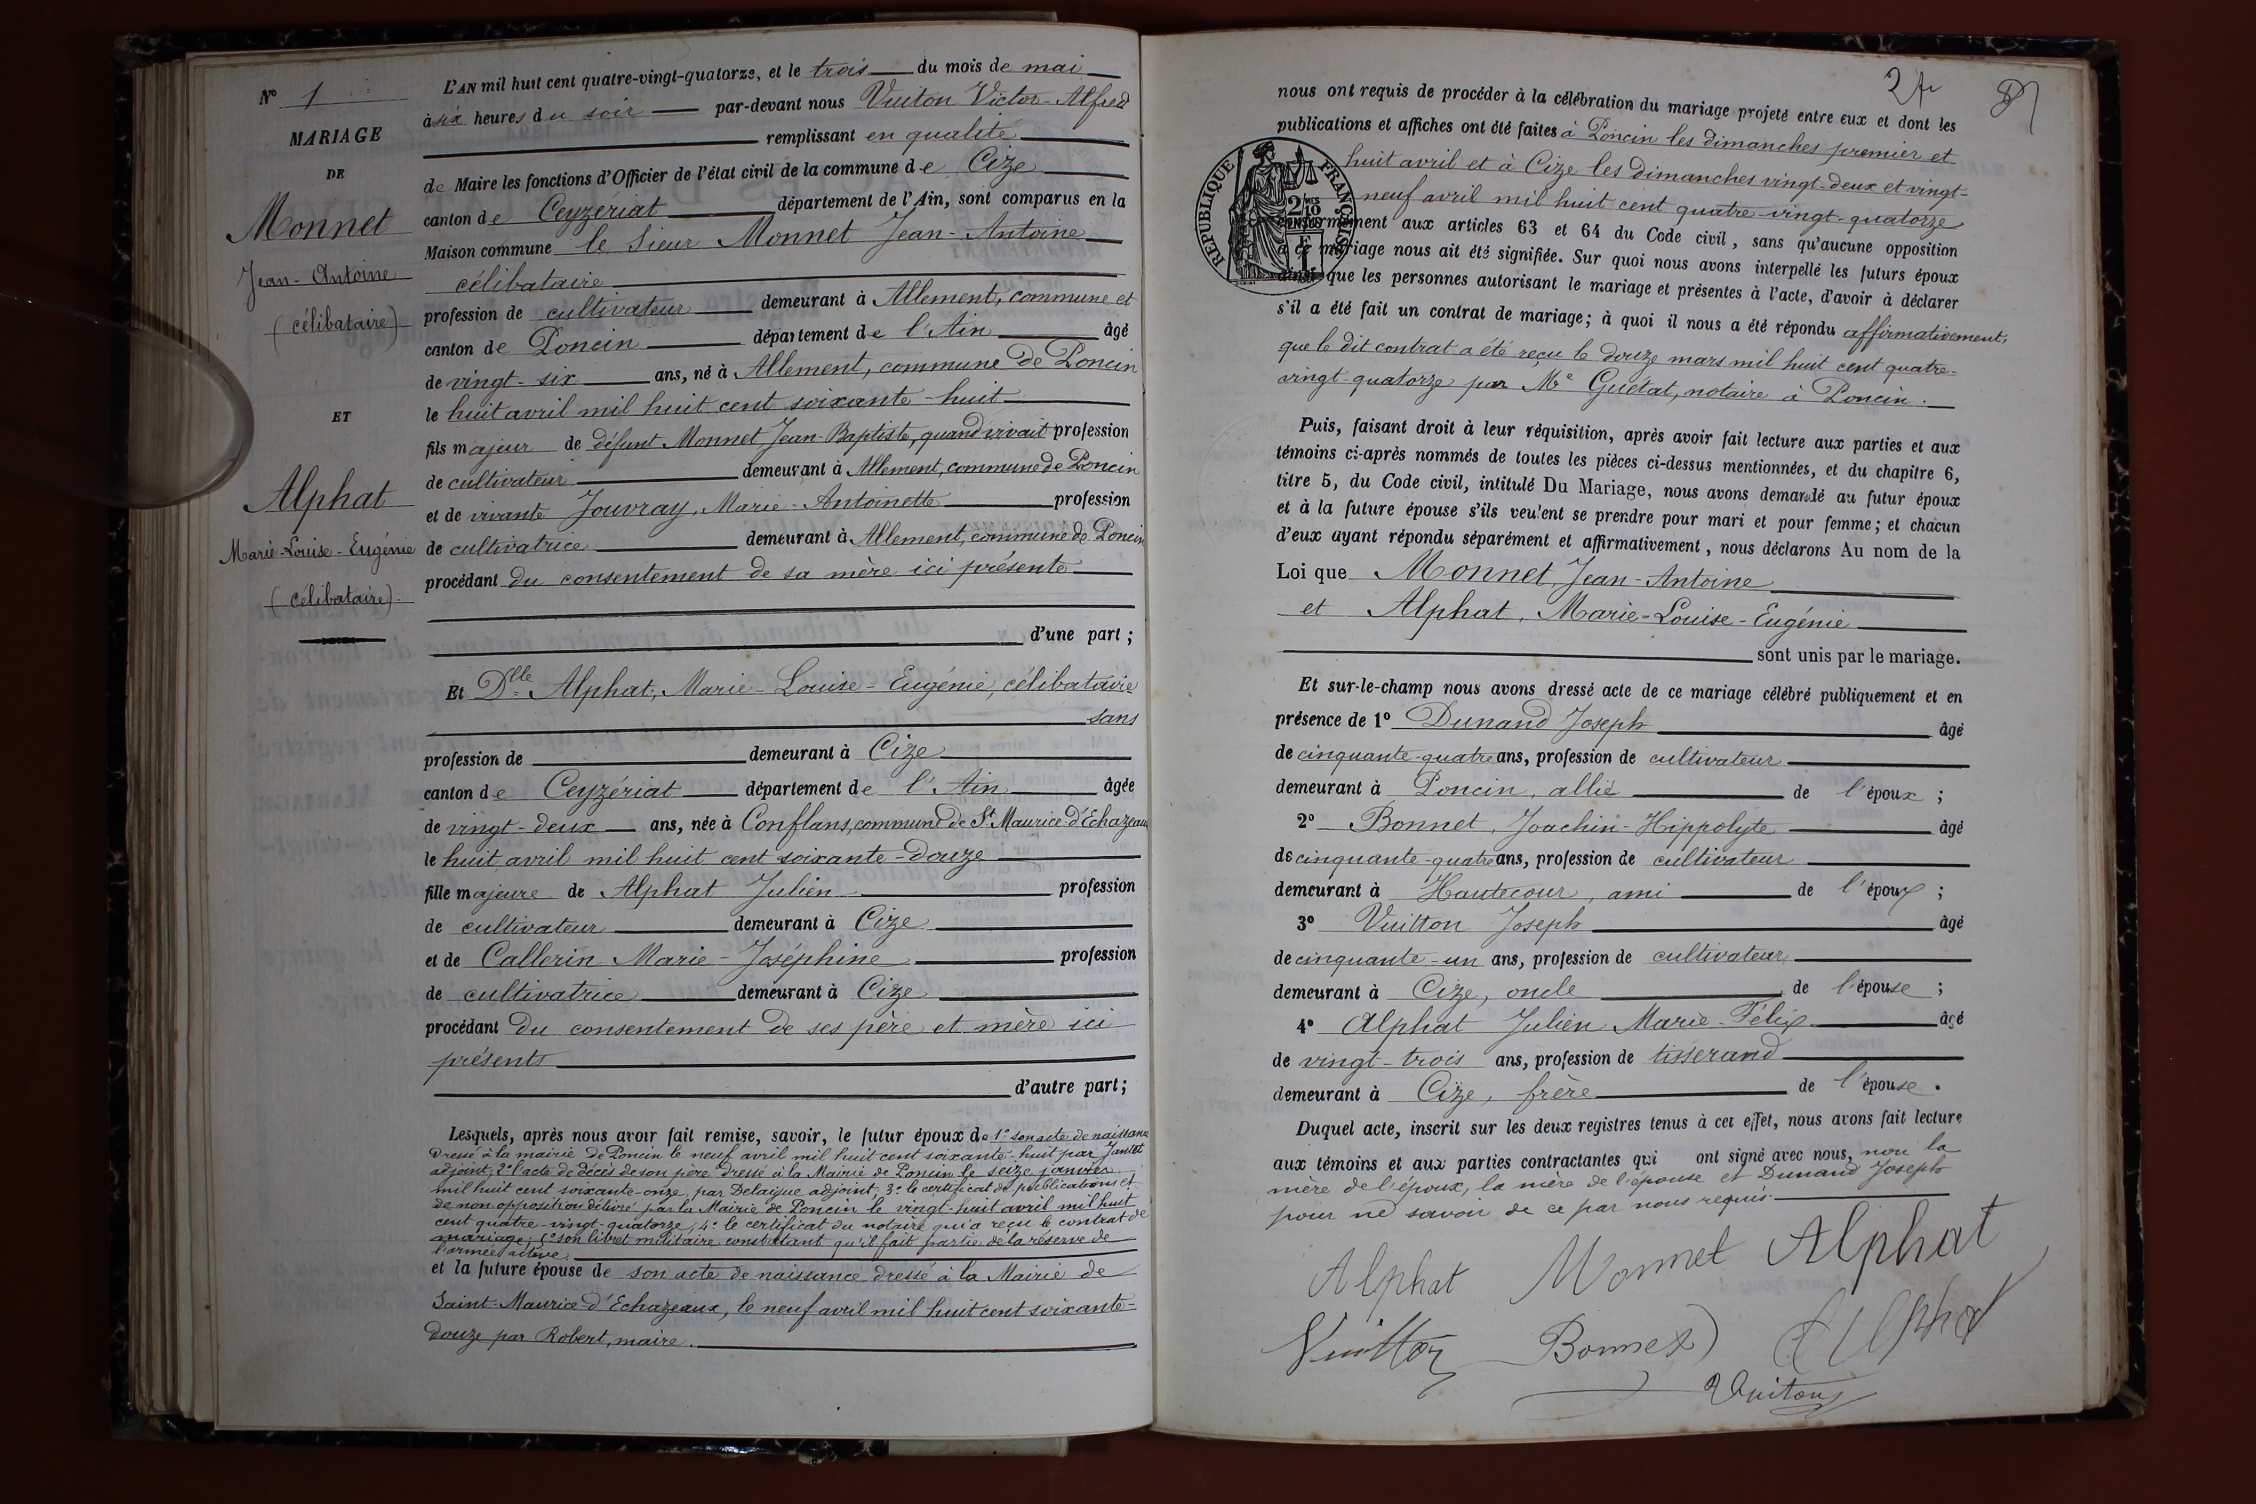 N° 1
MARIAGE
DE
Monnet
Jean-Antoine
(célibataire)
ET
Alphat
Marie-Louise-Eugénie
(célibataire).
L'AN mil huit cent quatre-vingt-quatorze, et le trois du mois de mai
à six heures du soir par-devant nous Vuiton Victor-Alfred
remplissant en qualité
de Maire les fonctions d'Officier de l'état civil de la commune de Cize
canton de Ceyzeriat département de l'Ain, sont comparus en la
Maison commune le Sieur Monnet Jean-Antoine
célibataire
profession de cultivateur demeurant à Allement, commune et
canton de Poncin département de l'Ain âgé
de vingt-six ans, né à Allement, commune de Poncin
le huit avril mil huit cent soixante-huit
fils majeur de défunt Monnet Jean-Baptiste, quand vivait profession
de cultivateur demeurant à Allement, commune de Poncin
et de vivante Jouvray, Marie-Antoinette profession
de cultivatrice demeurant à Allement, commune de Poncin
procédant du consentement de sa mère ici présente
d'une part;
Et Dlle Alphat, Marie-Louise-Eugénie, célibataire
sans
profession de demeurant à Cize
canton de Ceyzériat département de l'Ain âgée
de vingt-deux ans, née à Conflans, commune de St Maurice d'Echazeaux
le huit avril mil huit cent soixante-douze
fille majeure de Alphat Julien profession
de cultivateur demeurant à Cize
et de Callerin Marie-Joséphine profession
de cultivatrice demeurant à Cize
procédant du consentement de ses père et mère ici
présents
d'autre part;
Lesquels, après nous avoir fait remise, savoir, le futur époux de 1° son acte de naissance
dressé à la mairie de Poncin le neuf avril mil huit cent soixante-huit par Jantet
adjoint; 2° l'acte de décès de son père dressé à la Mairie de Poncin le seize janvier
mil huit cent soixante-onze, par Delaigue adjoint; 3° le certificat de publications et
de non opposition délivré par la Mairie de Poncin le vingt-huit avril mil huit
cent quatre-vingt-quatorze; 4° le certificat du notaire qui a reçu le contrat de
mariage; 5° son livret militaire constatant qu'il fait partie de la réserve de
l'armée active
et la future épouse de son acte de naissance dressé à la Mairie de
Saint-Maurice d'Echazeaux, le neuf avril mil huit cent soixante-
douze par Robert, maire.
2
nous ont requis de procéder à la célébration du mariage projeté entre eux et dont les
publications et affiches ont été faites à Poncin les dimanches premier et
huit avril et à Cize les dimanches vingt-deux et vingt-
neuf avril mil huit cent quatre-vingt-quatorze
RÉPUBLIQUE FRANÇAISE
conformément aux articles 63 et 64 du Code civil, sans qu'aucune opposition
à ce mariage nous ait été signifiée. Sur quoi nous avons interpellé les futurs époux
ainsi que les personnes autorisant le mariage et présentes à l'acte, d'avoir à déclarer
s'il a été fait un contrat de mariage; à quoi il nous a été répondu affirmativement,
que le dit contrat a été reçu le douze mars mil huit cent quatre-
vingt-quatorze par Me Guétat, notaire à Poncin.
Puis, faisant droit à leur réquisition, après avoir fait lecture aux parties et aux
témoins ci-après nommés de toutes les pièces ci-dessus mentionnées, et du chapitre 6,
titre 5, du Code civil, intitulé Du Mariage, nous avons demandé au futur époux
et à la future épouse s'ils veulent se prendre pour mari et pour femme; et chacun
d'eux ayant répondu séparément et affirmativement, nous déclarons Au nom de la
Loi que Monnet, Jean-Antoine
et Alphat, Marie-Louise-Eugénie
sont unis par le mariage.
Et sur-le-champ nous avons dressé acte de ce mariage célébré publiquement et en
présence de 1° Dunand Joseph âgé
de cinquante-quatre ans, profession de cultivateur
demeurant à Poncin, allié de l'époux;
2° Bonnet, Joachin-Hippolyte âgé
de cinquante-quatre ans, profession de cultivateur
demeurant à Hautecour, ami de l'époux;
3° Vuitton Joseph âgé
de cinquante-un ans, profession de cultivateur
demeurant à Cize, oncle de l'épouse;
4° Alphat Julien Marie-Félix âgé
de vingt-trois ans, profession de tisserand
demeurant à Cize, frère de l'épouse.
Duquel acte, inscrit sur les deux registres tenus à cet effet, nous avons fait lecture
aux témoins et aux parties contractantes qui ont signé avec nous, non la
mère de l'époux, la mère de l'épouse et Dunand Joseph
pour ne savoir de ce par nous requis.
Alphat Monnet Alphat
Vuitton Bonnet Alphat
Vuiton